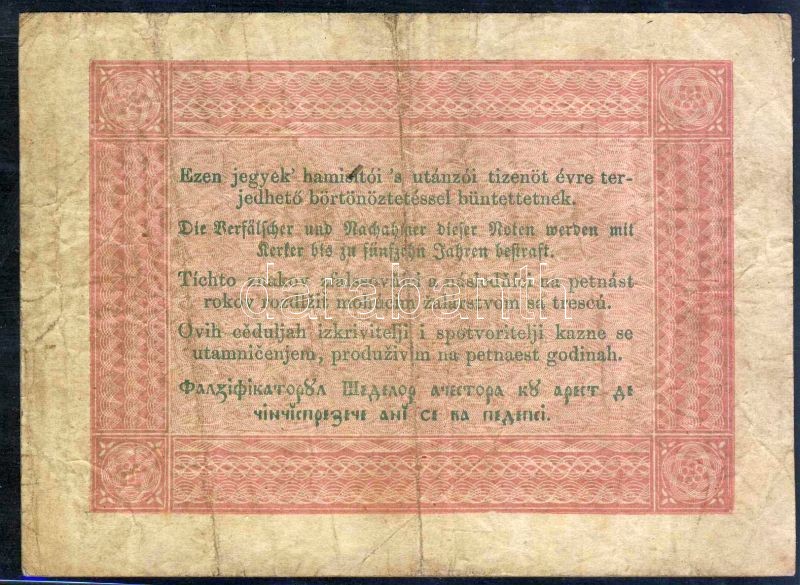 Ezen jegyek' hamisitói 's utánzói tizenöt évre ter-
jedhető börtönöztetéssel büntettetnek.
Die Verfälscher und Nachahmer dieser Noten werden mit
Kerker bis zu fünfzehn Jahren bestraft.
Tíchto znakov sfalšovníci a následníci na petnást
rokov rozdlžiť mohúcim žalárstvom sa trescú.
darabanth
Ovih céduljah izkrivitelji i spotvoritelji kazne se
utamničenjem, produživim na petnaest godinah.
Фалзіфікаторꙋл Шеделор ачестора кꙋ арест де
чінчіспрезече ані се ва педепсі.